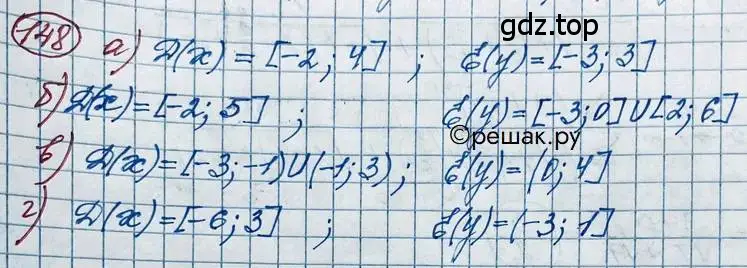 gdz.top
148 а) D(x) = [-2; 4] ; E(y) = [-3; 3]
б) D(x) = [-2; 5] ; E(y) = [-3; 0] U [2; 6]
©reшак.ру
в) D(x) = [-3; -1) U (-1; 3) ; E(y) = (0; 4]
г) D(x) = [-6; 3] ; E(y) = (-3; 1]